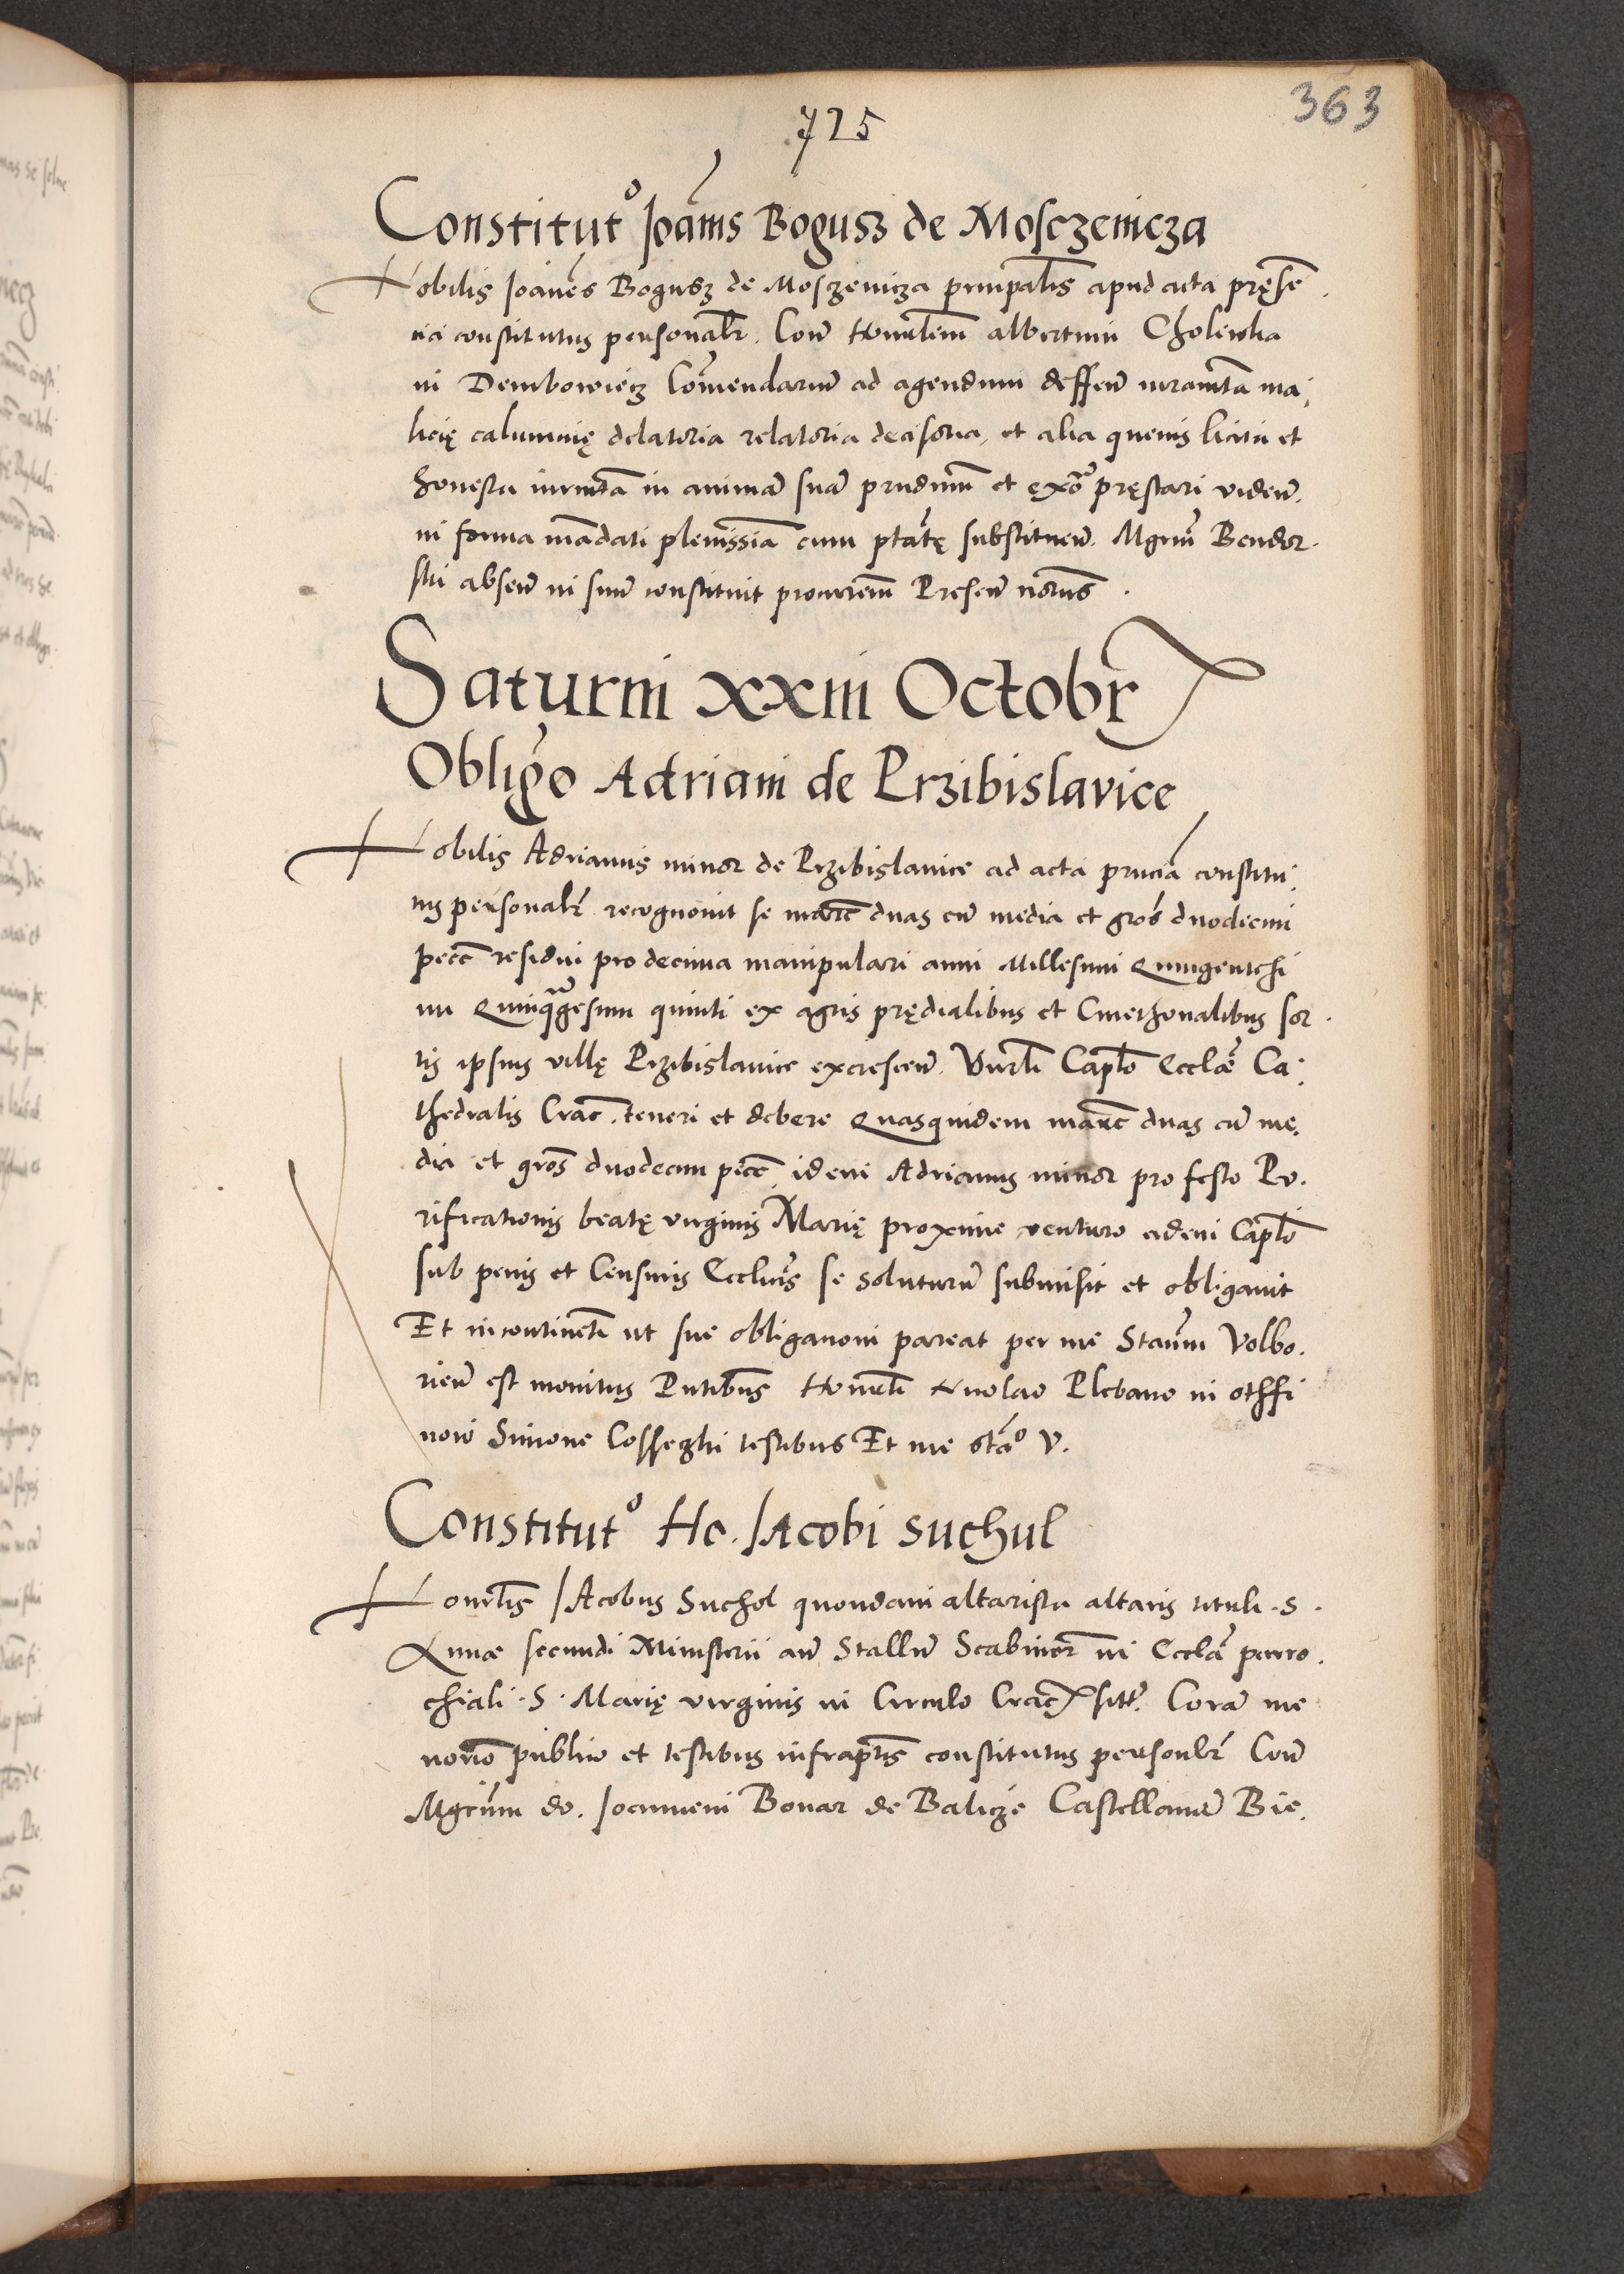 725
363
Constitut° Joānis Bogusz de Mosczenicza
Nobilis Joānēs Bogusz de Mosczenicza prinpalis apud acta pręsen
cia constitutus personalr̄. Coram Honorabilem albertum Cholewka
in Dembowiecz Com̄endarium ad agendum deffen̄ iuramta ma
licię calumnię delatoria relatoria decisoria, et alia quevis licita et
honesta iuramta in animā suā prestandum et pręstari viden̄.
in forma mādati plenissīa cum ptāte substituen̄. Mgrm̄ Bendor
ski absen̄ in suum constituit procurem̄ Presen̄ notriis.
Saturni xxiii Octobr
Obligō Adriani de Przibislavice
Nobilis Adrianus minor de Przibislavice ad acta prn̄cia constitu
tus personalr̄ recognovit se marc̄ duas cū media et gros̄ duodecim
pecc̄ residui pro decima manipulari anni Millesimi Quingentesi
mi Quinquagesimi quinti ex agris prędialibus et Cmethonalibus sor
tis ipsius villę Przibislavice excrescen̄. Vnrli Caplo Ecclæ Ca
thedralis Crac̄. teneri et debere Quasquidem marc̄ duas cū me
dia et gros̄ duodecim pecc̄ idem Adrianus minor pro festo Pu
rificationis beatę virginis Marię proxime venturo eidem Caplo
sub penis et Censuris Ecclicis se soluturū submisit et obligavit
Et incontinenti ut sue obligationi pareat per me Stanm Volbo
rien̄ est monitus Pntibus Honorli Nicolao Plebano in othffi
now Simone Cosseghi testibus Et me stāo V.
Constitut° Ho. Jacobi suchul
Honorlis Jacobus Suchol quondam altarista altaris tituli .S.
Annæ secundi Ministerii an̄ Stallum Scabinor̄ in Eccla parro
chiali .S. Marię virginis in Circulo Crac̄ sitt. Corā me
notrio publico et testibus infraptis constitutus personlr̄ Coram
Mgcum do. Joannem Bonar de Balicze Castellanum Bie